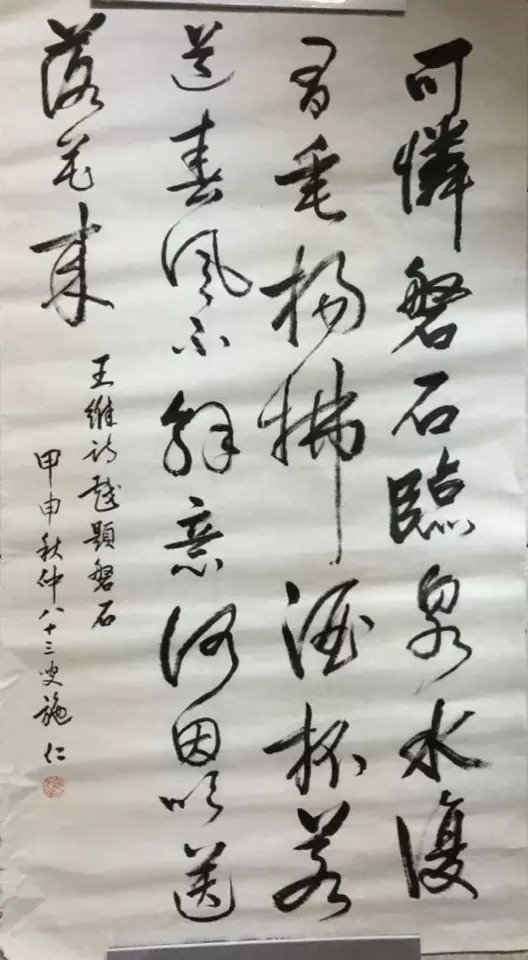 可憐磐石臨泉水復
有垂楊拂酒杯若
道春風不解意何因吹送
落花来
王維詩戲題磐石
甲申秋仲八十三叟施仁